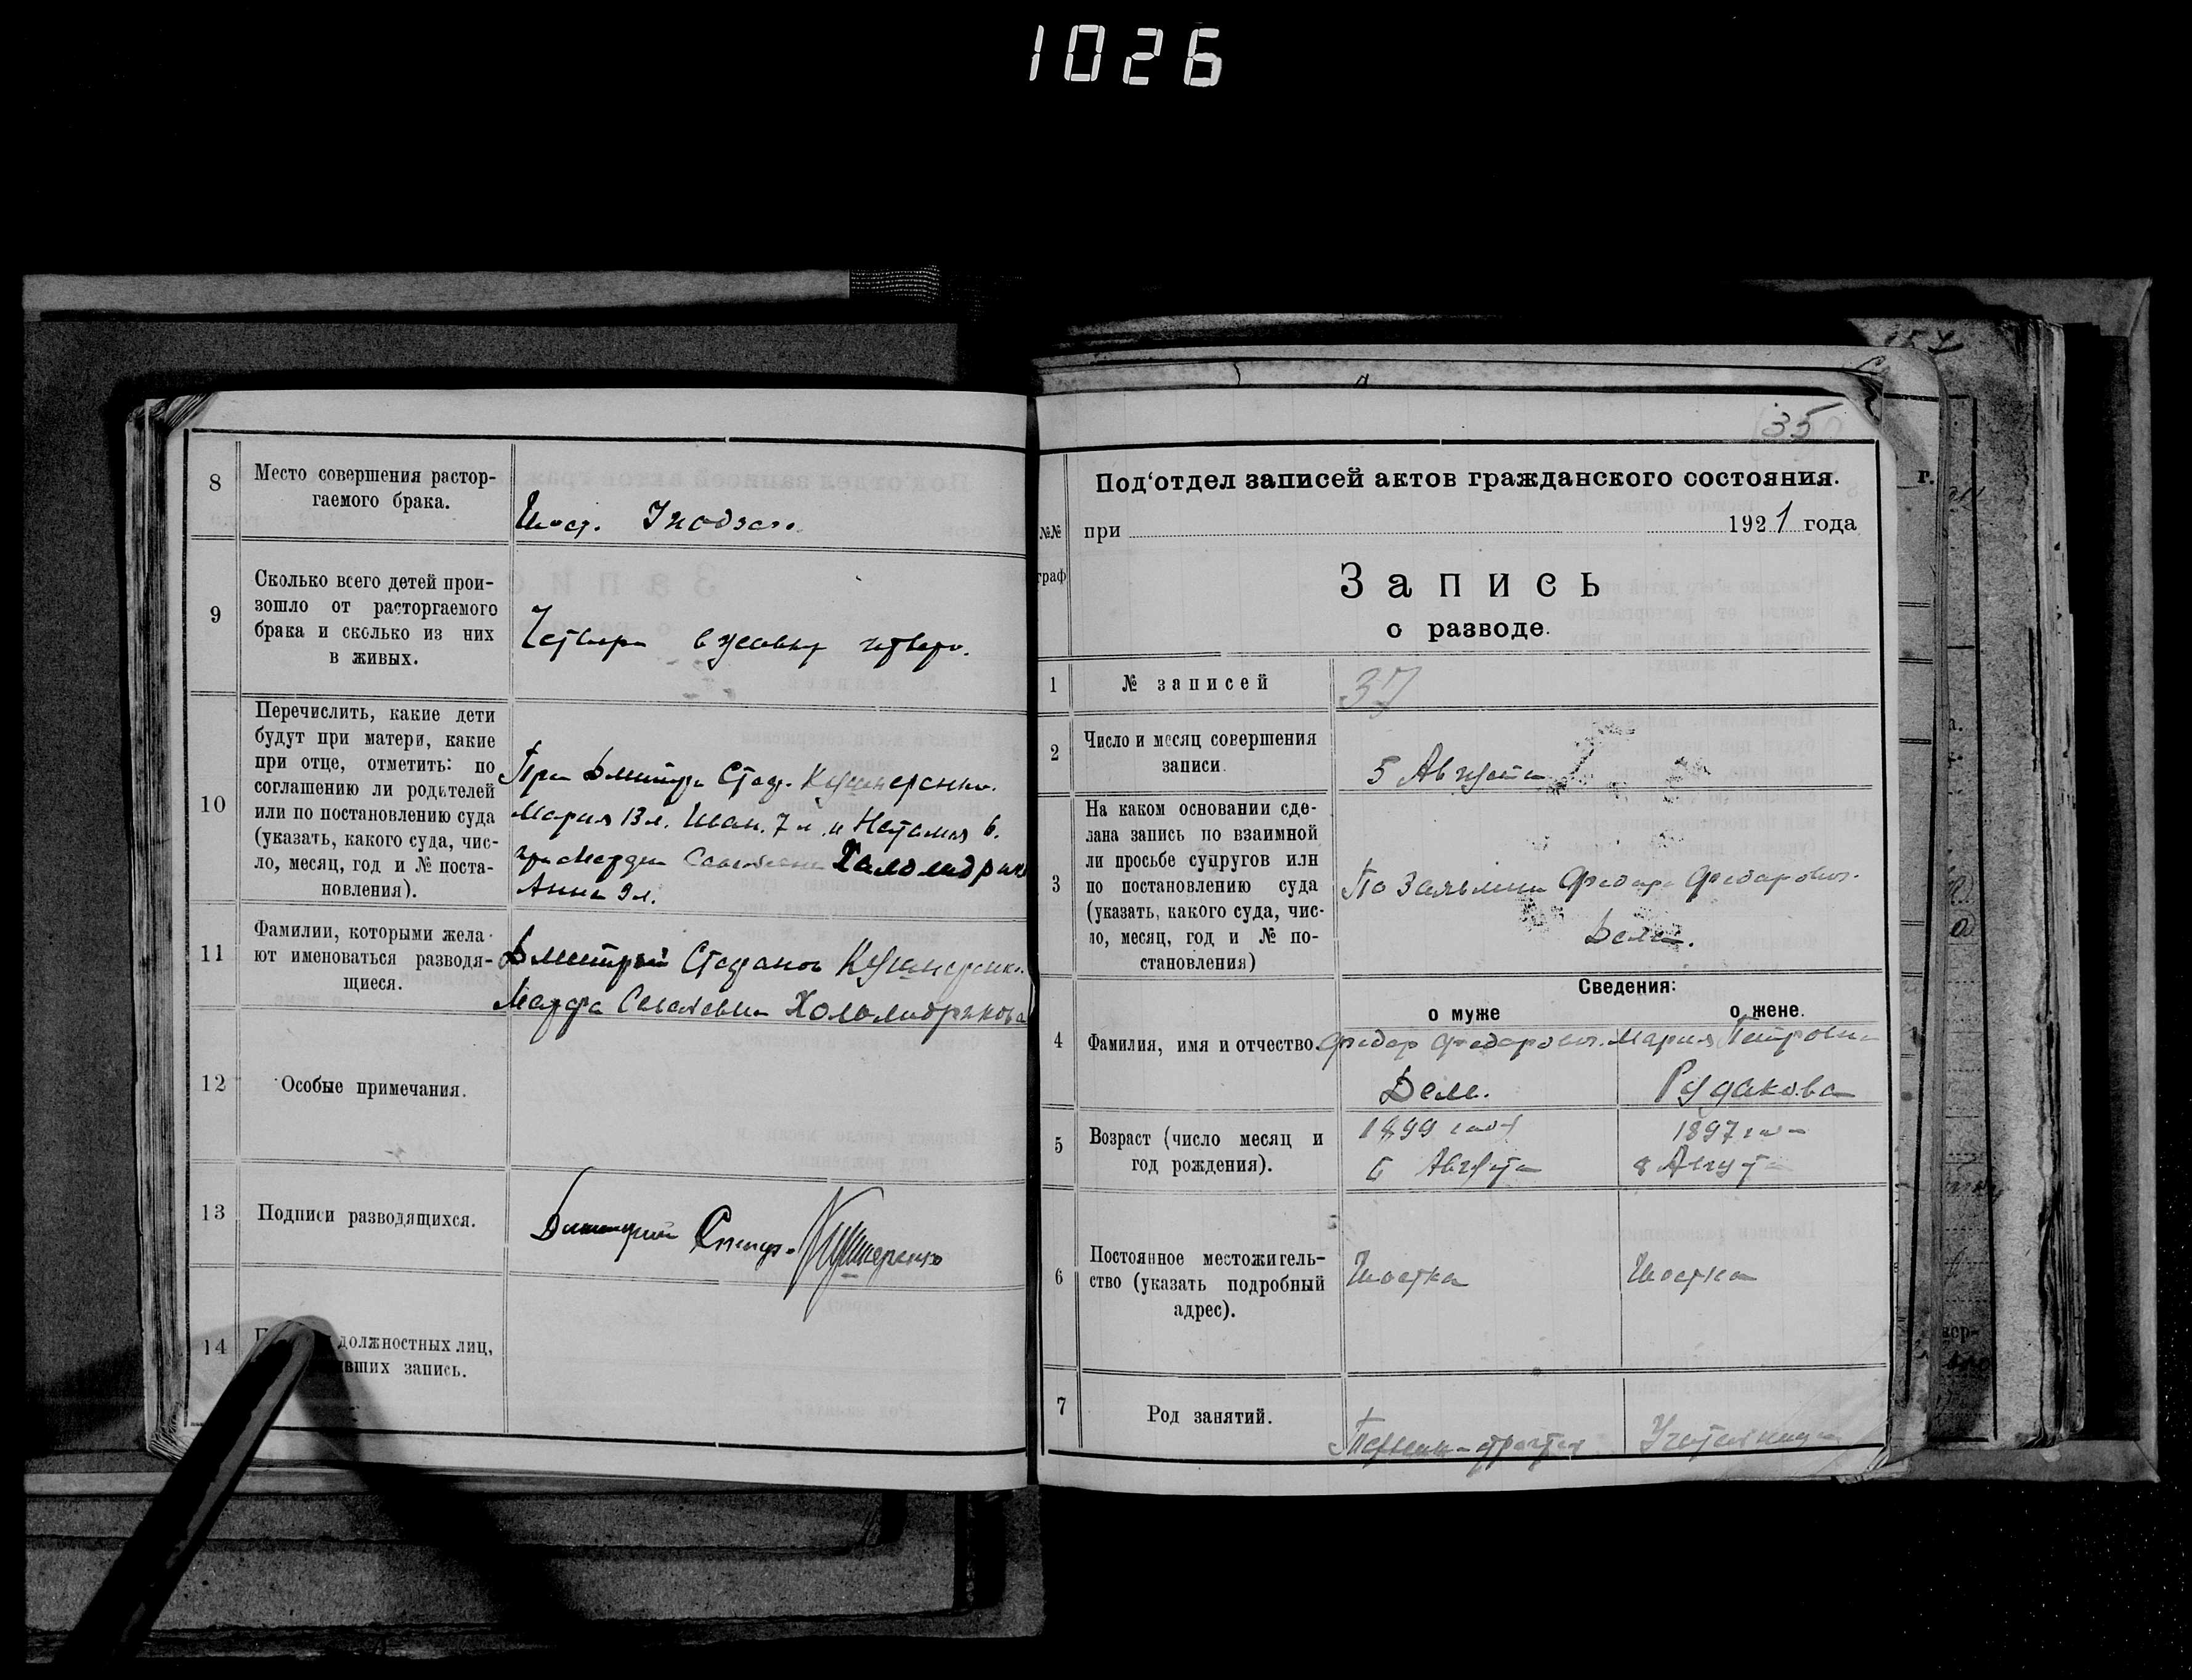 1026
8
Место совершения растор-
гаемого брака.
9
Сколько всего детей прои-
зошло от расторгаемого
брака и сколько из них
в живых.
Четверо в живых четверо.
10
Перечислить, какие дети
будут при матери, какие
при отце, отметить: по
соглашению ли родителей
или по постановлению суда
(указать, какого суда, чис-
ло, месяц, год и № поста-
новления).
При Дмитри Стеф. Кушнеренко.
Мария 13 л. Иван. 7 л. и Наталия 6.
при
Анна 9 л.
11
Фамилии, которыми жела-
ют именоваться разводя-
щиеся.
Дмитрий Стефанов Кушнеренко.
12
Особые примечания.
13
Подписи разводящихся.
Димитрий Кушнеренко
14
должностных лиц,
вших запись.
35
№№
граф
Под'отдел записей актов гражданского состояния.
при 1921 года
Запись
о разводе.
1
№ записей
37
2
Число и месяц совершения
записи.
5 Августа
3
На каком основании сде-
лана запись по взаимной
ли просьбе супругов или
по постановлению суда
(указать, какого суда, чис-
ло, месяц, год и № по-
становления)
По Федора Федорович.
Сведения:
о муже
о жене.
4
Фамилия, имя и отчество.
Федор Федорович. Мария Петровна
Деля.
Рудакова
5
Возраст (число месяц и
год рождения).
1899 год
1897 год
6 Августа
8 Августа
6
Постоянное местожитель-
ство (указать подробный
адрес).
Шостка
Шостка
7
Род занятий.
Учительница
г.